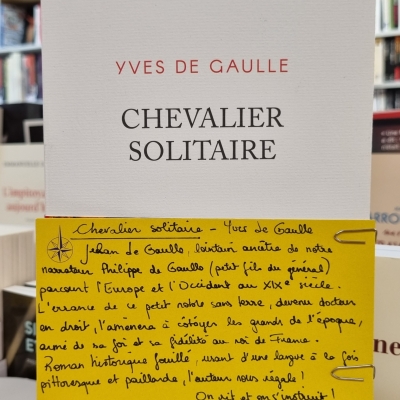 YVES DE GAULLE
CHEVALIER
SOLITAIRE
Chevalier solitaire - Yves de Gaulle
Jehan de Gaulle, lointain ancêtre de notre
narrateur Philippe de Gaulle (petit fils du général)
parcourt l'Europe et l'Occident au XIXe siècle.
L'errance de ce petit noble sans terre, devenu docteur
en droit, l'amènera à côtoyer les grands de l'époque,
armé de sa foi et sa fidélité au roi de France.
Roman historique fouillé, usant d'une langue à la fois
pittoresque et paillarde, l'auteur nous régale !
On rit et on s'instruit !
L'impitoya
aujourd'h